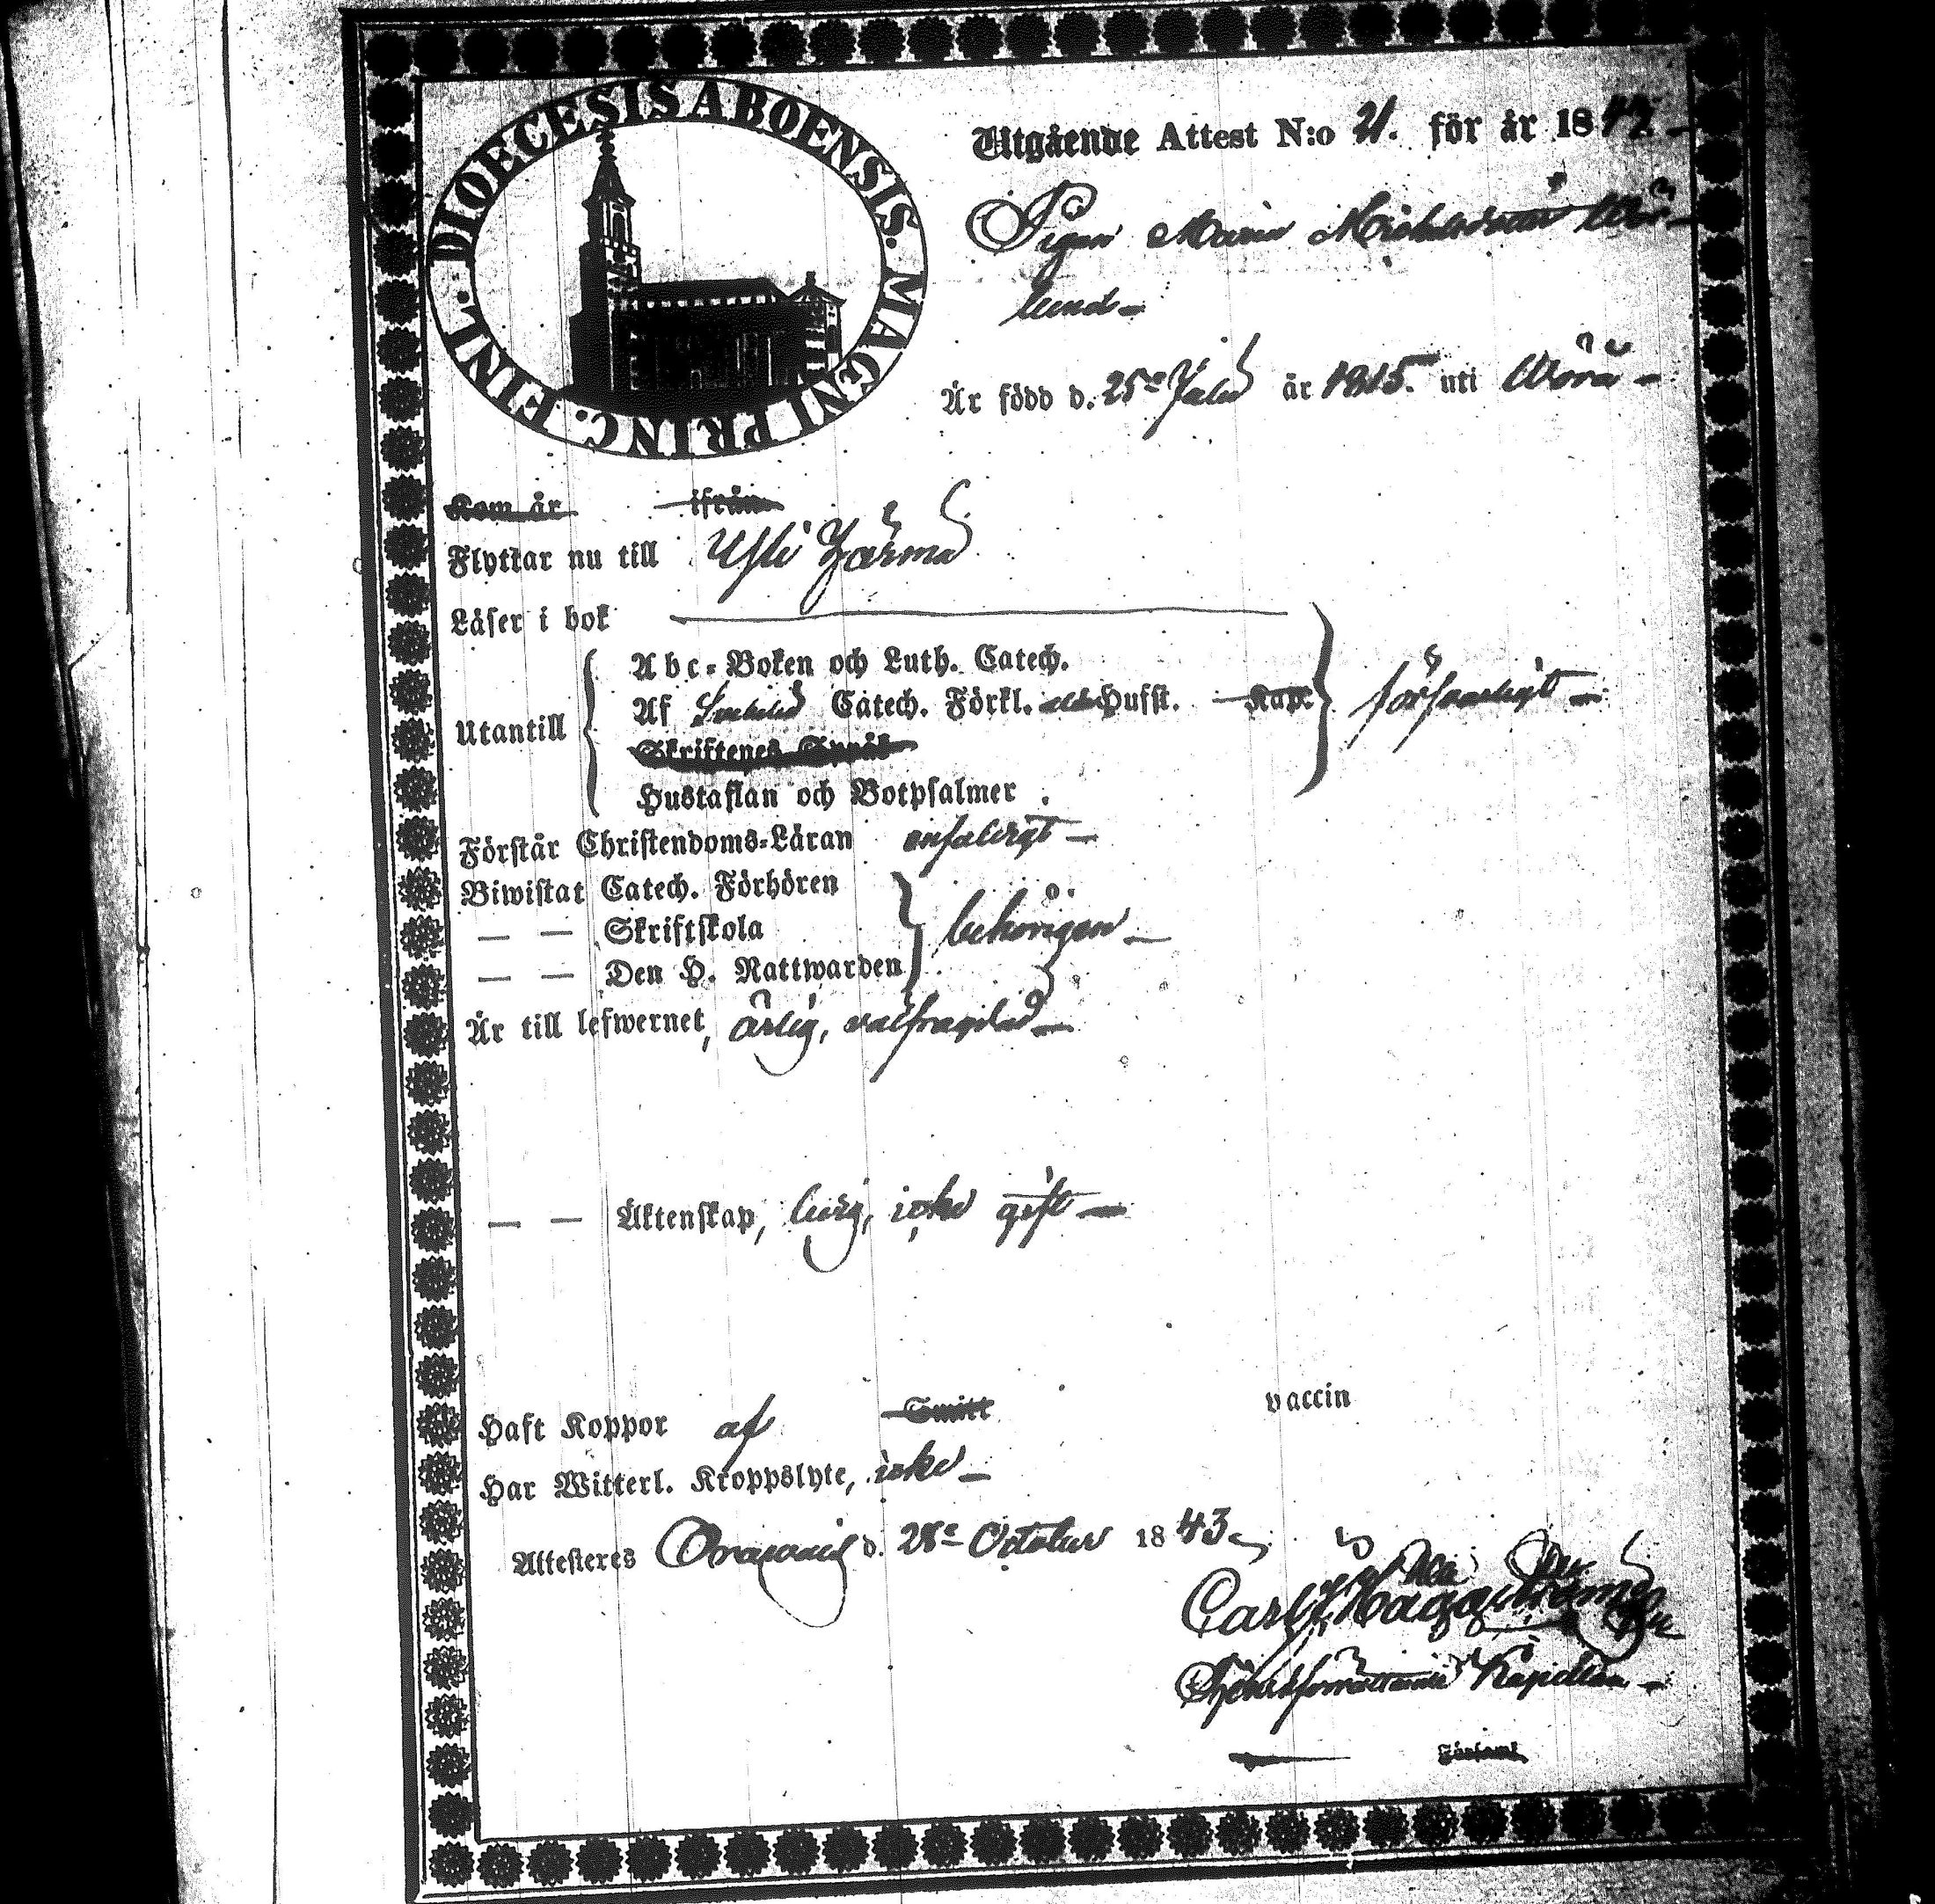 DIOECESIS ABOENSIS. MAGNI PRINC. FINL.
Utgående Attest N:o 21. för år 184
Pigan Maria Michelsdotter
lund
Är född d. 25e Julii år 1815. uti Wörå
Kom år ifrån
Flyttar nu till Yli Härmä
Läser i bok
Utantill
Abc-Boken och Luth. Catech.
Af Svebelii Catech. Förkl. Husst. Kap.
Skriftenes Språk
Hustaflan och Botpsalmer.
försvarligt
Förstår Christendoms-Läran enfaldigt
Biwistat Catech. Förhören
— — Skriftskola
— — Den H. Nattwarden
behörigen
Är till lefwernet, ärlig, välfrägdad
— — Äktenskap, ledig, icke gift
Haft Koppor af Smitt vaccin
Har Witterl. Kroppslyte, icke
Attesteres Oravais d. 28e October 1843
Carl
Tjenstförrättande Kapellan
Församl.